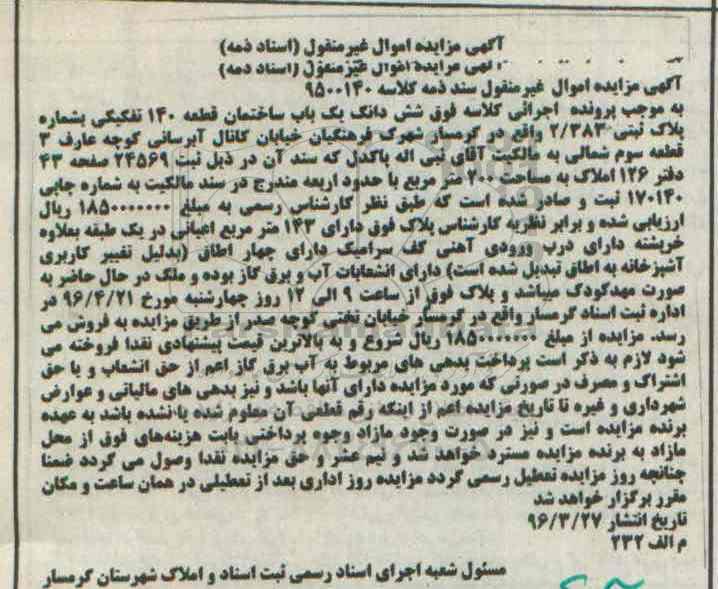 آگهی مزایده اموال غیرمنقول (اسناد ذمه)
آگهی مزایده اموال غیرمنقول (اسناد ذمه)
آگهی مزایده اموال غیرمنقول سند ذمه کلاسه ۹۵۰۰۱۴۰
به موجب پرونده اجرائی کلاسه فوق شش دانگ یک باب ساختمان قطعه ۱۴۰ تفکیکی بشماره
پلاک ثبتی ۲/۳۸۳ واقع در گرمسار شهرک فرهنگیان خیابان کانال آبرسانی کوچه عارف ۳
قطعه سوم شمالی به مالکیت آقای نبی اله پاکدل که سند آن در ذیل ثبت ۲۴۵۶۹ صفحه ۴۳
دفتر ۱۲۶ املاک به مساحت ۲۰۰ متر مربع با حدود اربعه مندرج در سند مالکیت به شماره چاپی
۱۷۰۱۴۰ ثبت و صادر شده است که طبق نظر کارشناس رسمی به مبلغ ۱۸۵۰۰۰۰۰۰۰ ریال
ارزیابی شده و برابر نظریه کارشناس پلاک فوق دارای ۱۴۳ متر مربع اعیانی در یک طبقه بعلاوه
خرپشته دارای درب ورودی آهنی کف سرامیک دارای چهار اطاق (بدلیل تغییر کاربری
آشپزخانه به اطاق تبدیل شده است) دارای انشعابات آب و برق گاز بوده و ملک در حال حاضر به
صورت مهدکودک میباشد و پلاک فوق از ساعت ۹ الی ۱۲ روز چهارشنبه مورخ ۹۶/۴/۲۱ در
اداره ثبت اسناد گرمسار واقع در گرمسار خیابان تختی کوچه صدر از طریق مزایده به فروش می
رسد. مزایده از مبلغ ۱۸۵۰۰۰۰۰۰۰ ریال شروع و به بالاترین قیمت پیشنهادی نقدا فروخته می
شود لازم به ذکر است پرداخت بدهی های مربوط به آب برق گاز اعم از حق انشعاب و یا حق
اشتراک و مصرف در صورتی که مورد مزایده دارای آنها باشد و نیز بدهی های مالیاتی و عوارض
شهرداری و غیره تا تاریخ مزایده اعم از اینکه رقم قطعی آن معلوم شده یا نشده باشد به عهده
برنده مزایده است و نیز در صورت وجود مازاد وجوه پرداختی بابت هزینه‌های فوق از محل
مازاد به برنده مزایده مسترد خواهد شد و نیم عشر و حق مزایده نقدا وصول می گردد ضمنا
چنانچه روز مزایده تعطیل رسمی گردد مزایده روز اداری بعد از تعطیلی در همان ساعت و مکان
مقرر برگزار خواهد شد
تاریخ انتشار ۹۶/۳/۲۷
م الف ۲۳۲
مسئول شعبه اجرای اسناد رسمی ثبت اسناد و املاک شهرستان گرمسار